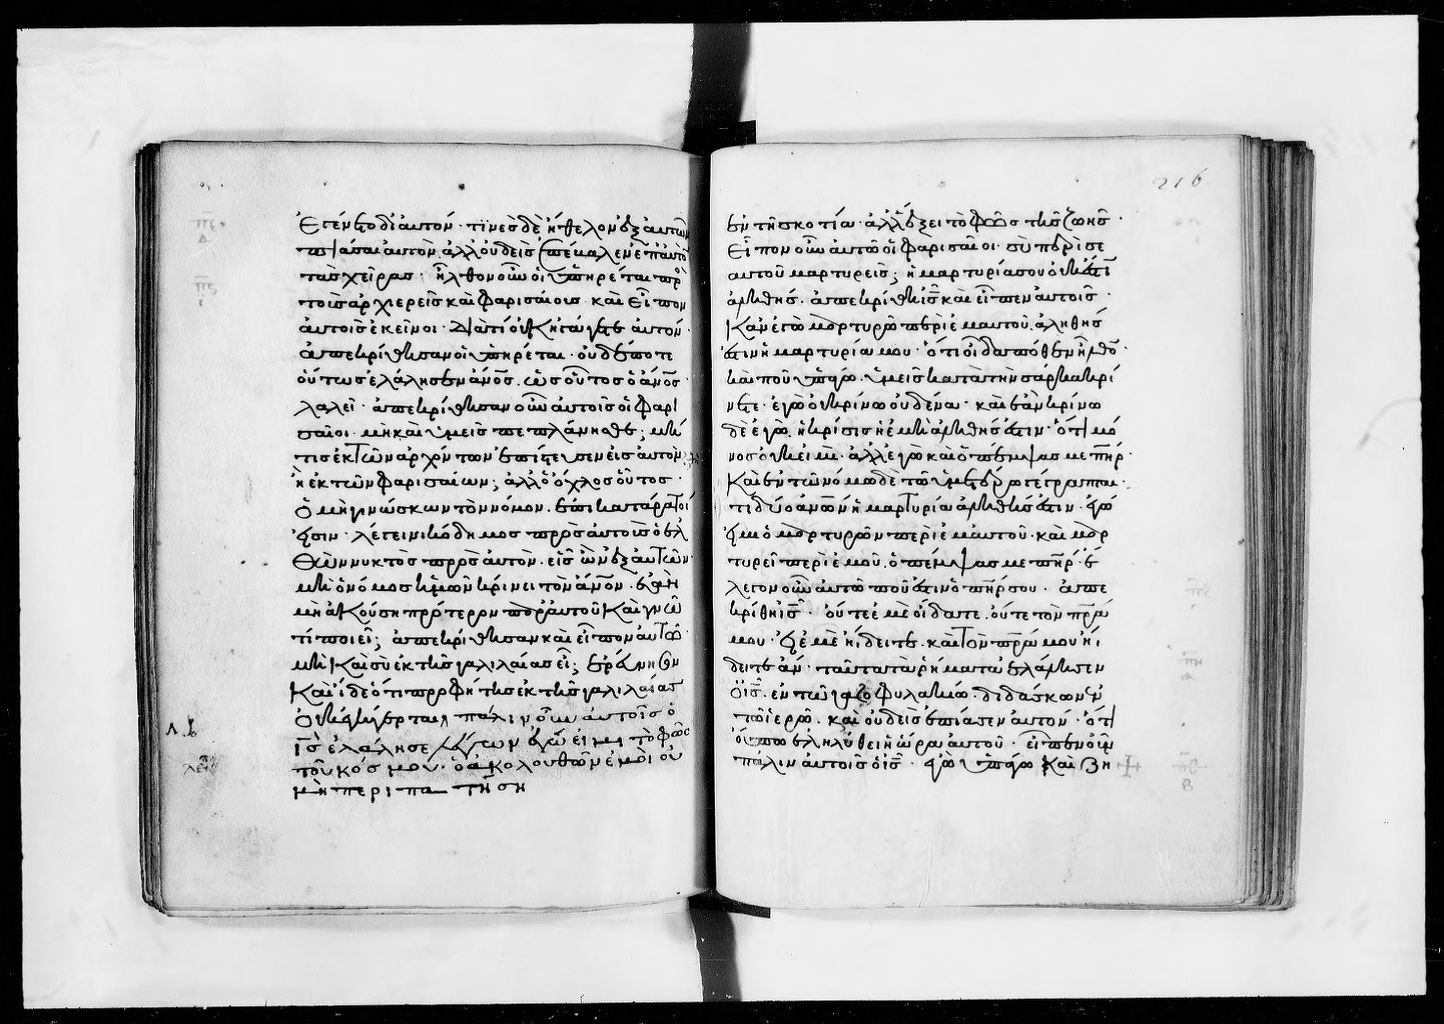 ἐγένετο δι' αὐτόν · τινὲς δὲ ἤθελον ἐξ αὐτῶν
πιάσαι αὐτὸν ἀλλ' οὐδεὶς ἐπέβαλεν ἐπ' αὐτὸ
τὰς χεῖρας · ἦλθον οὖν οἱ ὑπηρέται πρὸ
τοὺς ἀρχιερεῖς καὶ φαρισαίους · καὶ εἶπον
αὐτοῖς ἐκεῖνοι · διατί οὐκ ἠγάγετε αὐτόν ·
ἀπεκρίθησαν οἱ ὑπηρέται · οὐδέποτε
οὕτως ἐλάλησεν ἄνος · ὡς οὗτος ὁ ἄνος ·
λαλεῖ · ἀπεκρίθησαν οὖν αὐτοῖς οἱ φαρι
σαῖοι · μὴ καὶ ὑμεῖς πεπλάνησθε ; μή
τις ἐκ τῶν ἀρχόντων ἐπίστευσεν εἰς αὐτὸν ;
ἢ ἐκ τῶν φαρισαίων ; ἀλλ' ὁ ὄχλος οὗτος ·
ὁ μὴ γινώσκων τὸν νόμον · ἐπικατάρατοί
εἰσιν · λέγει νικόδημος πρὸς αὐτοὺς ὁ ἐλ
θὼν νυκτὸς πρὸς αὐτὸν · εἷς ὢν ἐξ αὐτῶν ·
μὴ ὁ νόμος ἡμῶν κρίνει τὸν ἄνον · ἐὰν
μὴ ἀκούσῃ πρότερον παρ' αὐτοῦ καὶ γνῶ
τί ποιεῖ ; ἀπεκρίθησαν καὶ εἶπον αὐτῷ ·
μὴ καὶ σὺ ἐκ τῆς γαλιλαίας εἶ ; ἐρεύνησον
καὶ ἴδε ὅτι προφήτης ἐκ τῆς γαλιλαίας
οὐκ ἐγήγερται πάλιν οὖν αὐτοῖς ὁ
ις ἐλάλησε λέγων ἐγώ εἰμι τὸ φῶς
τοῦ κόσμου · ὁ ἀκολουθῶν ἐμοὶ οὐ
μὴ περιπατήση
216
ἐν τῇ σκοτία · ἀλλ' ἕξει τὸ φῶς τῆς ζωῆς ·
Εἶπον οὖν αὐτῷ οἱ φαρισαῖοι · σὺ περὶ σε
αυτοῦ μαρτυρεῖς ; ἡ μαρτυρία σου οὐκ ἔστι
ἀληθής · ἀπεκρίθη ις καὶ εἶπεν αὐτοῖς ·
Κἂν ἐγὼ μαρτυρῶ περὶ ἐμαυτοῦ · ἀληθής
ἐστιν ἡ μαρτυρία μου · ὅτι οἶδα πόθεν ἦλθο
καὶ ποῦ ὑπάγω · ὑμεῖς κατὰ τὴν σάρκα κρί
νετε · ἐγὼ οὐ κρίνω οὐδένα · καὶ ἐὰν κρίνω
δὲ ἐγὼ · ἡ κρίσις ἡ ἐμὴ ἀληθής ἐστιν · ὅτι μό
νος οὐκ εἰμί · ἀλλ' ἐγὼ καὶ ὁ πέμψας με πηρ ·
Καὶ ἐν τῷ νόμῳ δὲ τῷ ὑμετέρω γέγραπται ·
ὅτι δύο ἀνων ἡ μαρτυρία ἀληθής ἐστιν · ἐγώ
εἰμι ὁ μαρτυρῶν περὶ ἐμαυτοῦ · καὶ μαρ
τυρεῖ περὶ ἐμοῦ · ὁ πέμψας με πηρ · ἔ
λεγον οὖν αὐτῷ ποῦ ἐστιν ὁ πηρ σου · ἀπε
κρίθη ις · οὔτε ἐμὲ οἴδατε · οὔτε τὸν πρα
μου · εἰ ἐμὲ ᾔδειτε · καὶ τὸν πρα μου ᾔ
δειτε ἄν · ταῦτα τὰ ῥήματα ἐλάλησεν
ὁ ις · ἐν τῷ γαζοφυλακίω · διδάσκων ἐν
τῷ ἱερῷ · καὶ οὐδεὶς ἐπίασεν αὐτόν · ὅτι
οὔπω ἐληλύθει ἡ ὥρα αὐτοῦ · εἶπεν οὖν
πάλιν αὐτοῖς ὁ ις · ἐγὼ ὑπάγω καὶ ζη